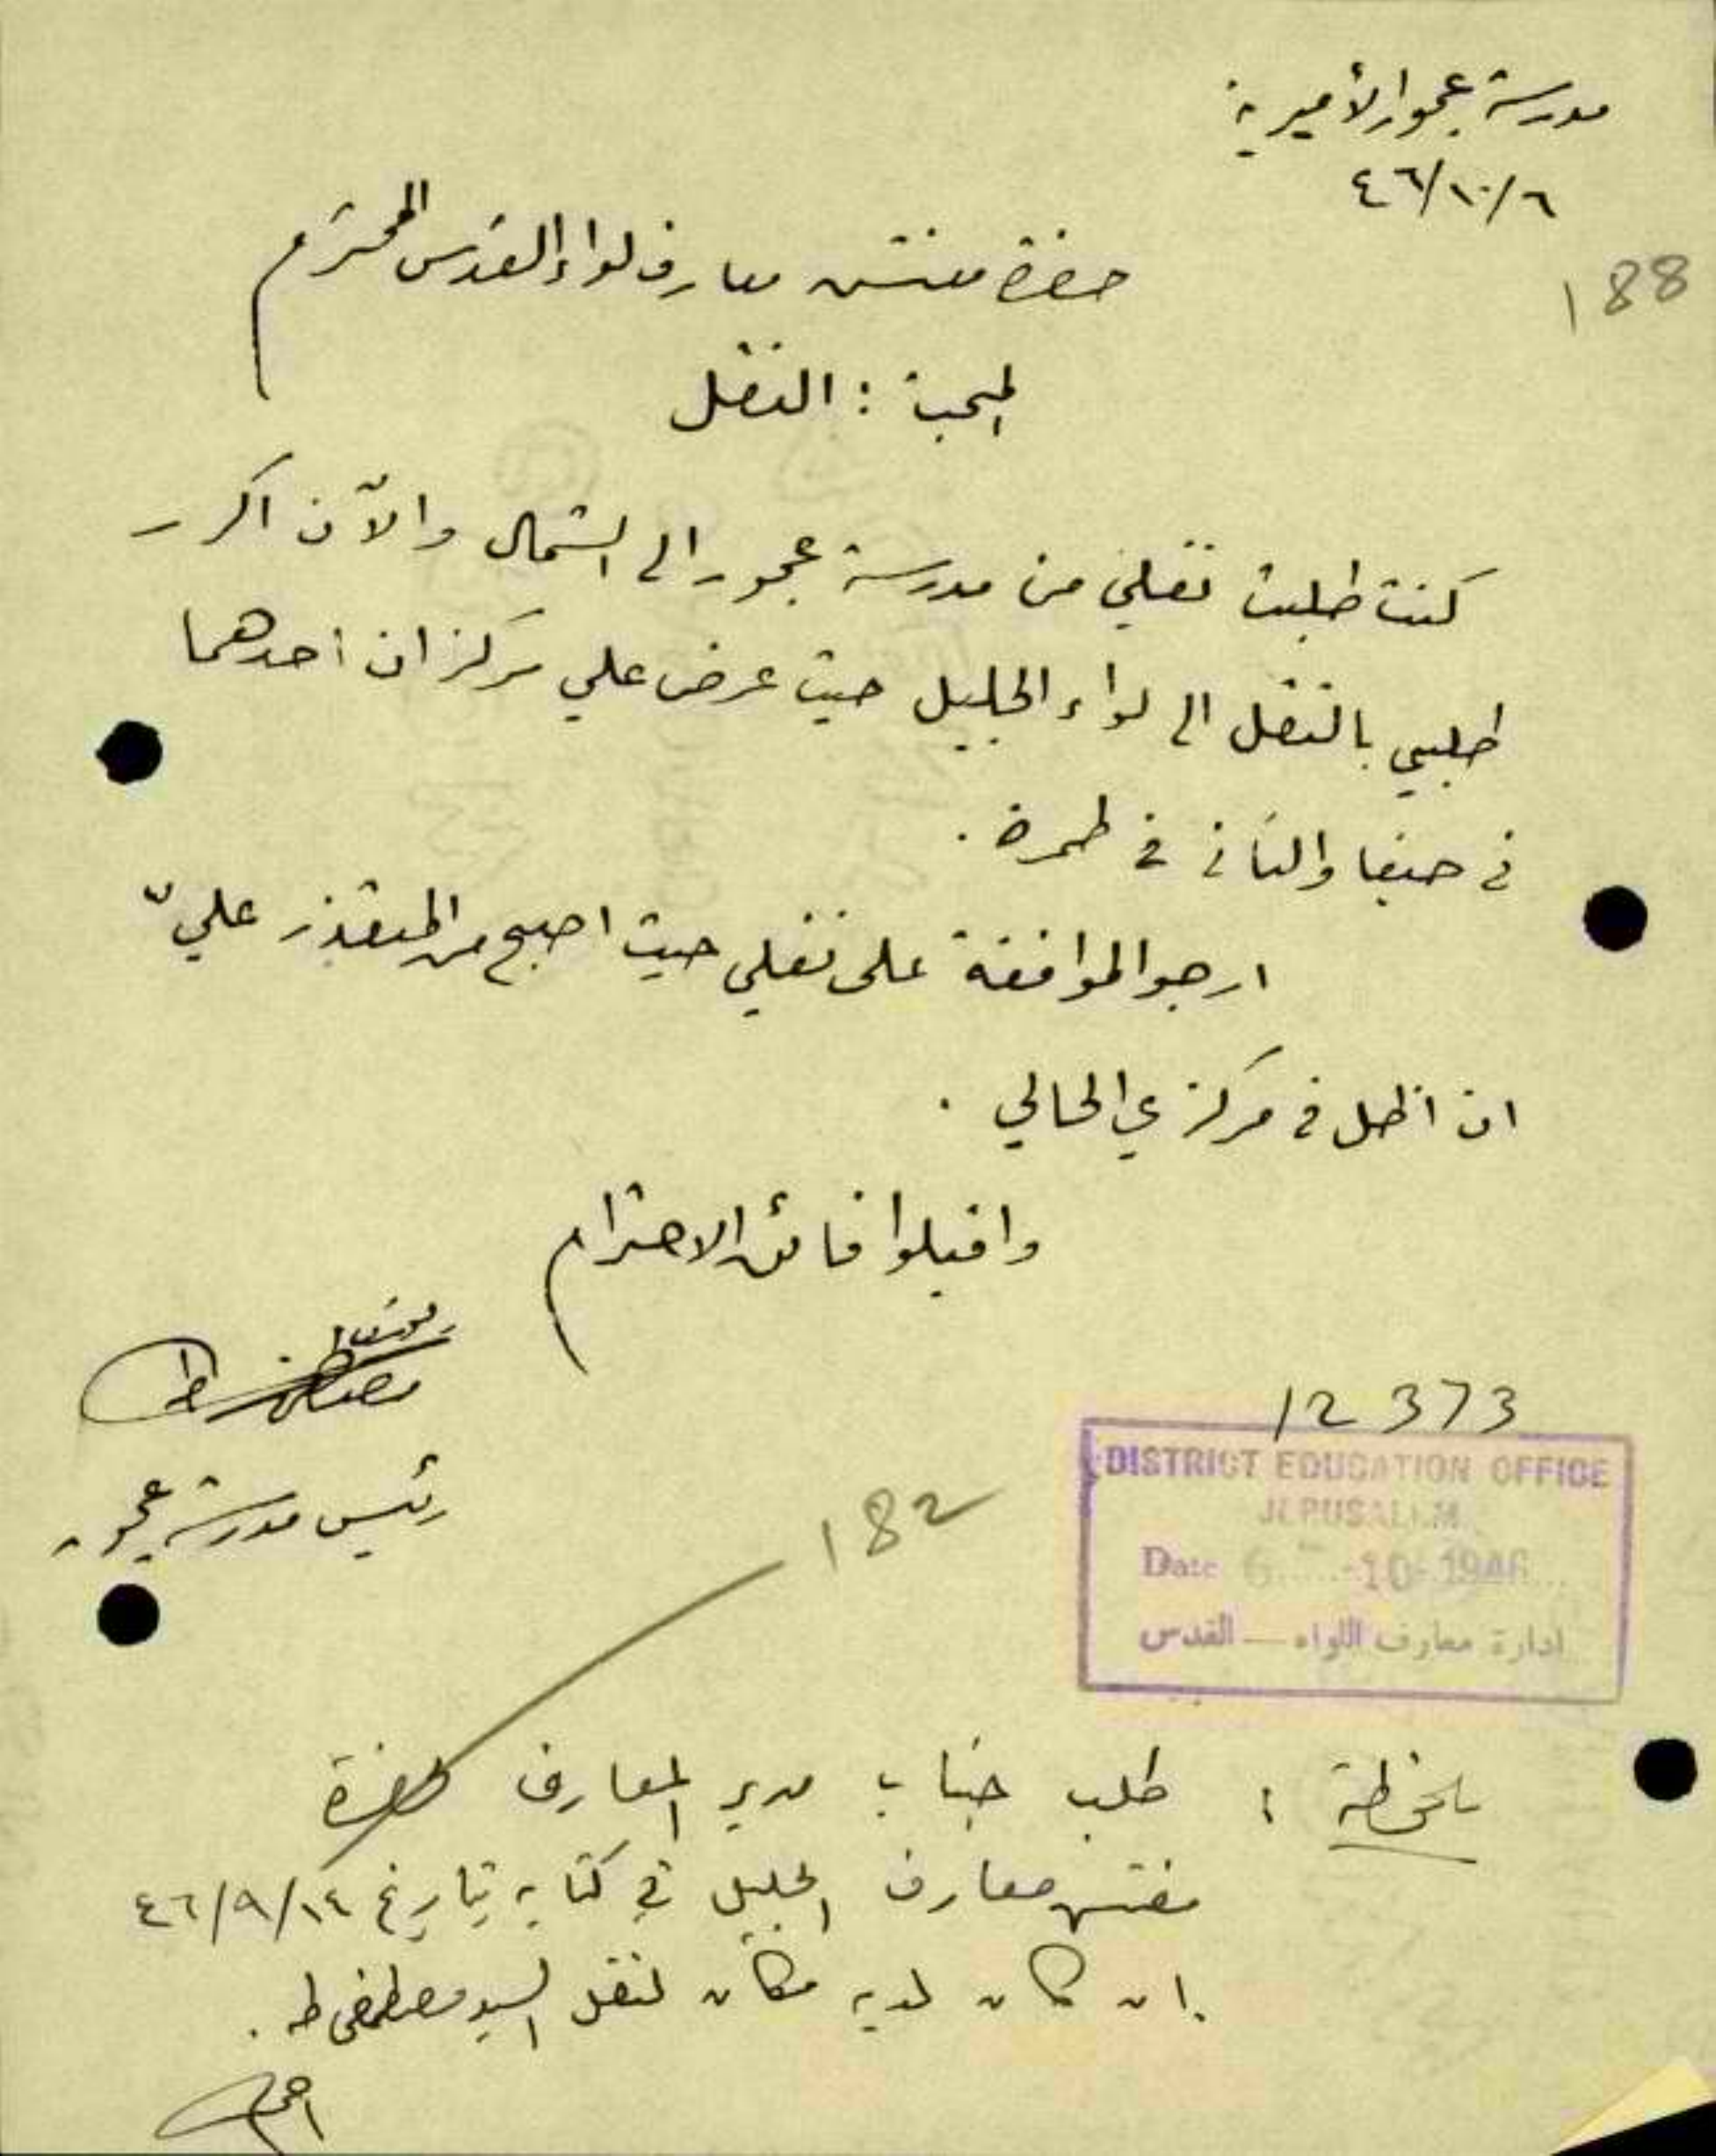 مدرسة عجور الأميرية
٤٦/١٠/٦
188
حضرة مفتش معارف لواء القدس المحترم
المبحث : النقل
كنت طلبت نقلي من مدرسة عجور الى الشمال والآن اكرر
طلبي بالنقل الى لواء الجليل حيث عرض علي مركزان احدهما
في حيفا والثاني في طمرة .
ارجو الموافقة على نقلي حيث اصبح من المتعذر عليّ
ان اظل في مركزي الحالي .
واقبلوا فائق الاحترام
مصطفى طه
رئيس مدرسة عجور
12373
DISTRICT EDUCATION OFFICE
JERUSALEM
Date 6 - 10 - 1946
ادارة معارف اللواء — القدس
182
ملحوظة : طلب جناب مدير المعارف لحضرة
مفتش معارف الجليل في كتابه بتاريخ ٤٦/٩/١٤
ان كان لديه مكان لنقل السيد مصطفى طه .